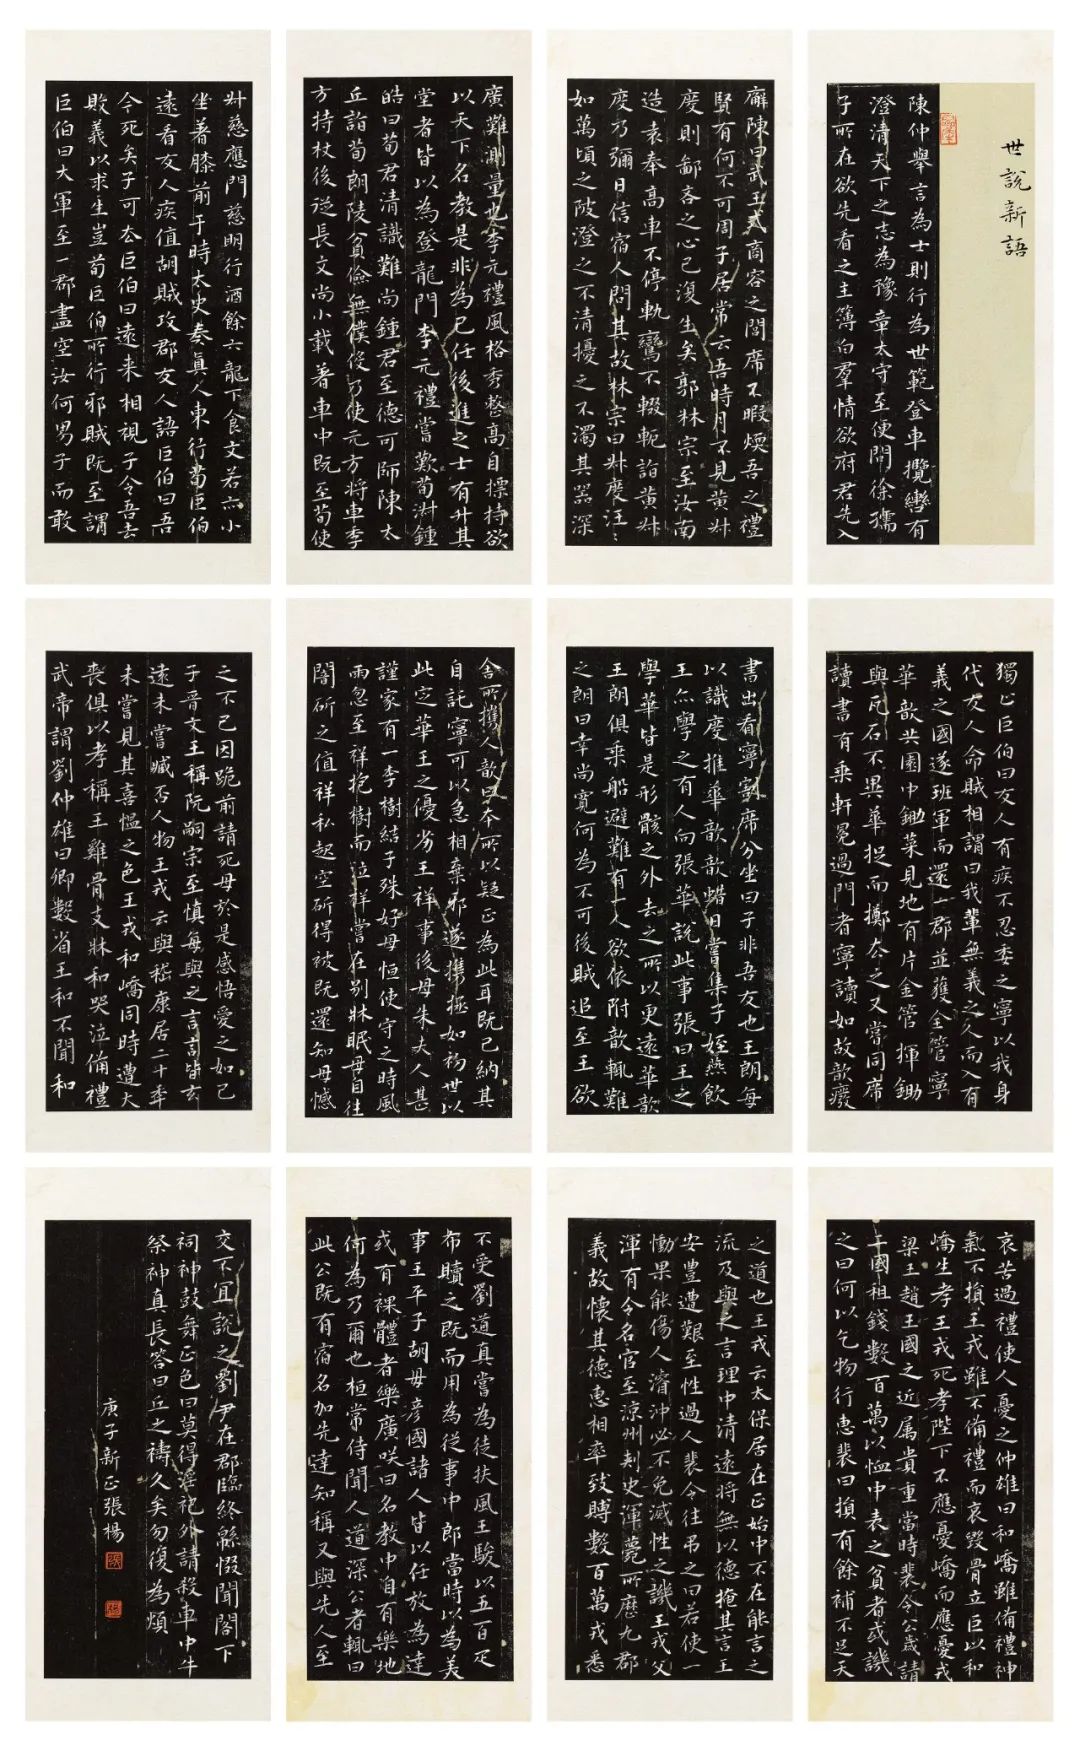 世說新語
陳仲舉言為士則行為世範登車攬轡有
澄清天下之志為豫章太守至便問徐孺
子所在欲先看之主簿白羣情欲府君先入
廨陳曰武王式商容之閭席不暇煖吾之禮
賢有何不可周子居常云吾時月不見黃叔
度則鄙吝之心已復生矣郭林宗至汝南
造袁奉高車不停軌鸞不輟軛詣黃叔
度乃彌日信宿人問其故林宗曰叔度汪〻
如萬頃之陂澄之不清擾之不濁其器深
廣難測量也李元禮風格秀整高自摽持欲
以天下名教是非為己任後進之士有升其
堂者皆以為登龍門李元禮嘗歎荀淑鍾
皓曰荀君清識難尚鍾君至德可師陳太
丘詣荀朗陵貧儉無僕役乃使元方將車季
方持杖後從長文尚小載著車中既至荀使
叔慈應門慈明行酒餘六龍下食文若亦小
坐著膝前于時太史奏真人東行荀巨伯
遠看友人疾值胡賊攻郡友人語巨伯曰吾
今死矣子可去巨伯曰遠來相視子令吾去
敗義以求生豈荀巨伯所行邪賊既至謂
巨伯曰大軍至一郡盡空汝何男子而敢
獨止巨伯曰友人有疾不忍委之寧以我身
代友人命賊相謂曰我輩無義之人而入有
義之國遂班軍而還一郡並獲全管寧
華歆共園中鋤菜見地有片金管揮鋤
與瓦石不異華捉而擲去之又嘗同席
讀書有乘軒冕過門者寧讀如故歆廢
書出看寧割席分坐曰子非吾友也王朗每
以識度推華歆歆蜡日嘗集子姪燕飲
王亦學之有人向張華說此事張曰王之
學華皆是形骸之外去之所以更遠華歆
王朗俱乘船避難有一人欲依附歆輒難
之朗曰幸尚寬何為不可後賊追至王欲
舍所攜人歆曰本所以疑正為此耳既已納其
自託寧可以急相棄邪遂攜拯如初世以
此定華王之優劣王祥事後母朱夫人甚
謹家有一李樹結子殊好母恒使守之時風
雨忽至祥抱樹而泣祥嘗在別牀眠母自往
闇斫之值祥私起空斫得被既還知母憾
之不已因跪前請死母於是感悟愛之如己
子晉文王稱阮嗣宗至慎每與之言言皆玄
遠未嘗臧否人物王戎云與嵇康居二十年
未嘗見其喜慍之色王戎和嶠同時遭大
喪俱以孝稱王雞骨支牀和哭泣備禮
武帝謂劉仲雄曰卿數省王和不聞和
哀苦過禮使人憂之仲雄曰和嶠雖備禮神
氣不損王戎雖不備禮而哀毀骨立臣以和
嶠生孝王戎死孝陛下不應憂嶠而應憂戎
梁王趙王國之近属貴重當時裴令公歲請
二國祖錢數百萬以恤中表之貧者或譏
之曰何以乞物行惠裴曰損有餘補不足天
之道也王戎云太保居在正始中不在能言之
流及與之言理中清遠將無以德掩其言王
安豐遭艱至性過人裴令往弔之曰若使一
慟果能傷人濬沖必不免滅性之譏王戎父
渾有令名官至涼州刺史渾薨所歷九郡
義故懷其德惠相率致賻數百萬戎悉
不受劉道真嘗為徒扶風王駿以五百疋
布贖之既而用為從事中郎當時以為美
事王平子胡毋彥國諸人皆以任放為達
或有裸體者樂廣咲曰名教中自有樂地
何為乃爾也桓常侍聞人道深公者輒曰
此公既有宿名加先達知稱又與先人至
交不宜說之劉尹在郡臨終緜惙聞閣下
祠神鼓舞正色曰莫得淫祀外請殺車中牛
祭神真長答曰丘之禱久矣勿復為煩
庚子新正張楊